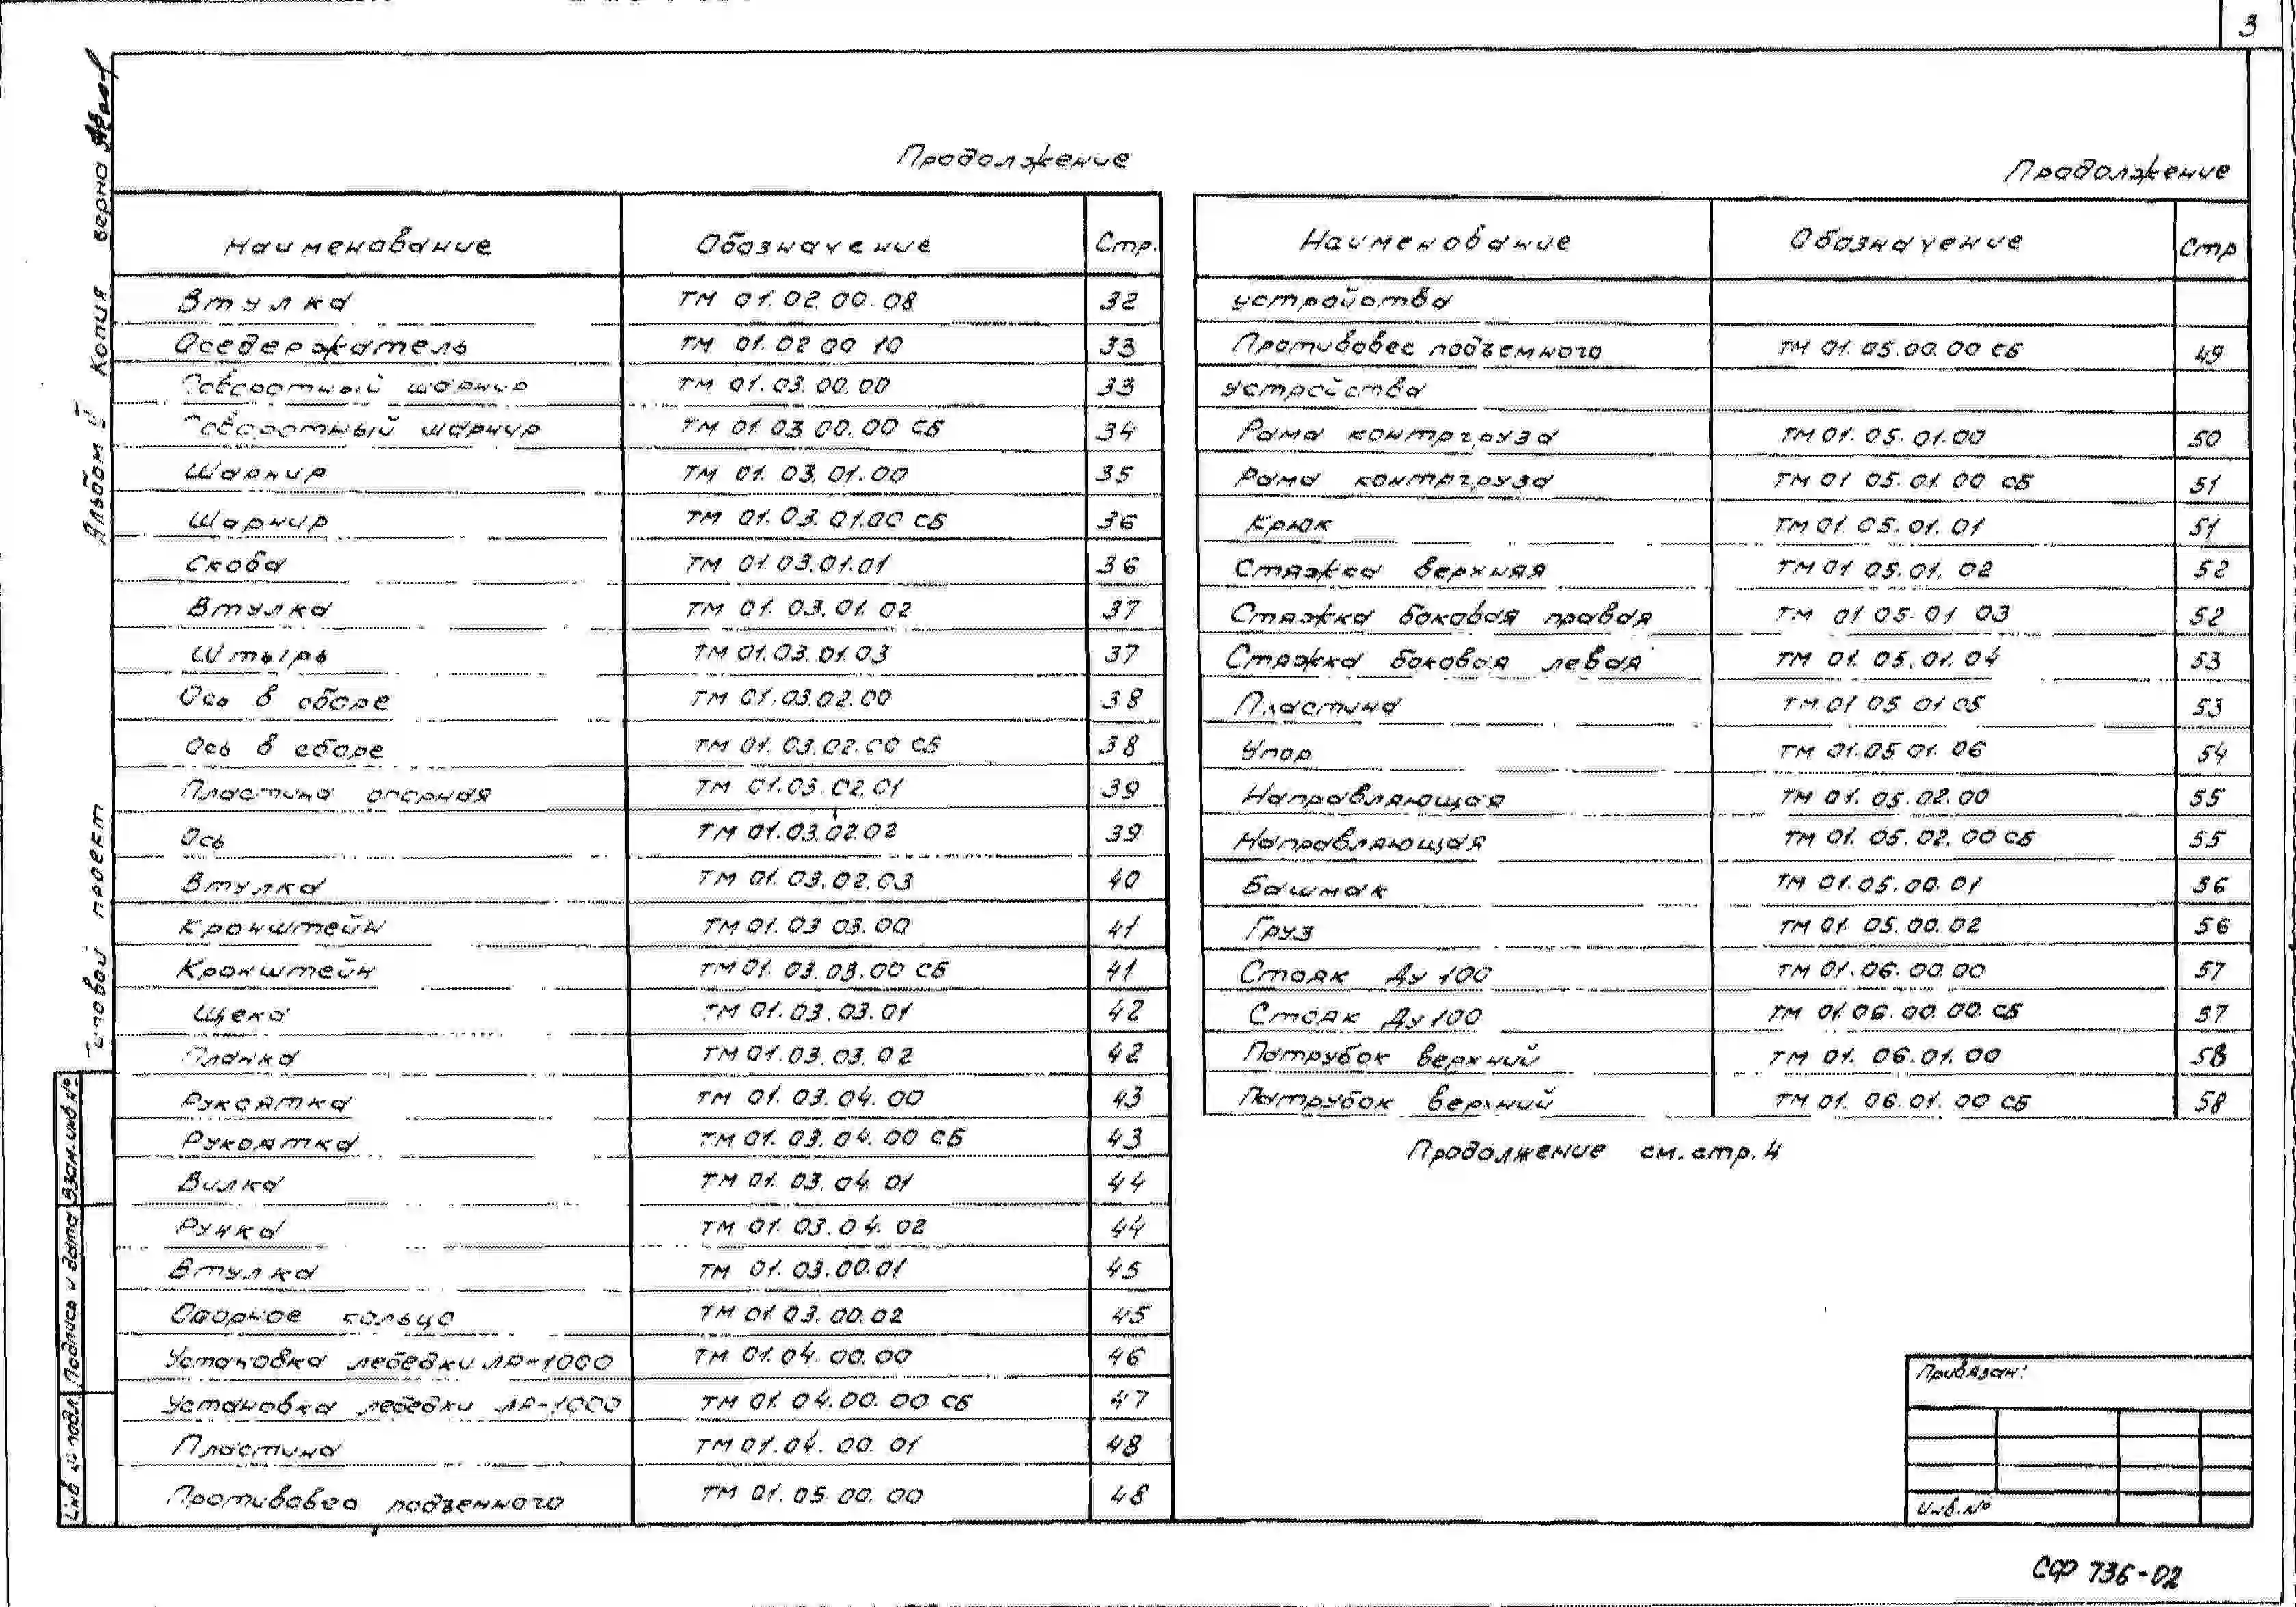 3
Продолжение
Наименование Обозначение Стр.
Втулка ТМ 01.02.00.08 32
Оседержатель ТМ 01.02 00 10 33
Поворотный шарнир ТМ 01.03.00.00 33
Поворотный шарнир ТМ 01.03 00.00 СБ 34
Шарнир ТМ 01.03.01.00 35
Шарнир ТМ 01.03.01.00 СБ 36
Скоба ТМ 01.03.01.01 36
Втулка ТМ 01.03.01.02 37
Штырь ТМ 01.03.01.03 37
Ось в сборе ТМ 01.03.02.00 38
Ось в сборе ТМ 01.03.02.00 СБ 38
Пластина опорная ТМ 01.03.02.01 39
Ось ТМ 01.03.02.02 39
Втулка ТМ 01.03.02.03 40
Кронштейн ТМ 01.03 03.00 41
Кронштейн ТМ 01.03.03.00 СБ 41
Щека ТМ 01.03.03.01 42
Планка ТМ 01.03.03.02 42
Рукоятка ТМ 01.03.04.00 43
Рукоятка ТМ 01.03.04.00 СБ 43
Вилка ТМ 01.03.04.01 44
Ручка ТМ 01.03.04.02 44
Втулка ТМ 01.03.00.01 45
Опорное кольцо ТМ 01.03.00.02 45
Установка лебедки ЛР-1000 ТМ 01.04.00.00 46
Установка лебедки ЛР-1000 ТМ 01.04.00.00 СБ 47
Пластина ТМ 01.04.00.01 48
Противовес подъемного ТМ 01.05.00.00 48
Продолжение
Наименование Обозначение Стр
устройства
Противовес подъемного ТМ 01.05.00.00 СБ 49
устройства
Рама контргруза ТМ 01.05.01.00 50
Рама контргруза ТМ 01 05.01.00 СБ 51
Крюк ТМ 01.05.01.01 51
Стяжка верхняя ТМ 01 05.01.02 52
Стяжка боковая правая ТМ 01 05.01 03 52
Стяжка боковая левая ТМ 01.05.01.04 53
Пластина ТМ 01 05 01 05 53
Упор ТМ 01.05 01.06 54
Направляющая ТМ 01.05.02.00 55
Направляющая ТМ 01.05.02.00 СБ 55
Башмак ТМ 01.05.00.01 56
Груз ТМ 01 05.00.02 56
Стояк Ду 100 ТМ 01.06.00.00 57
Стояк Ду 100 ТМ 01.06.00.00.СБ 57
Патрубок верхний ТМ 01.06.01.00 58
Патрубок верхний ТМ 01.06.01.00 СБ 58
Продолжение см.стр.4
Привязан:
Инв.№
СФ 736-02
Альбом Копия верна
Типовой проект
Взам.инв.№
Подпись и дата
Инв № подл.